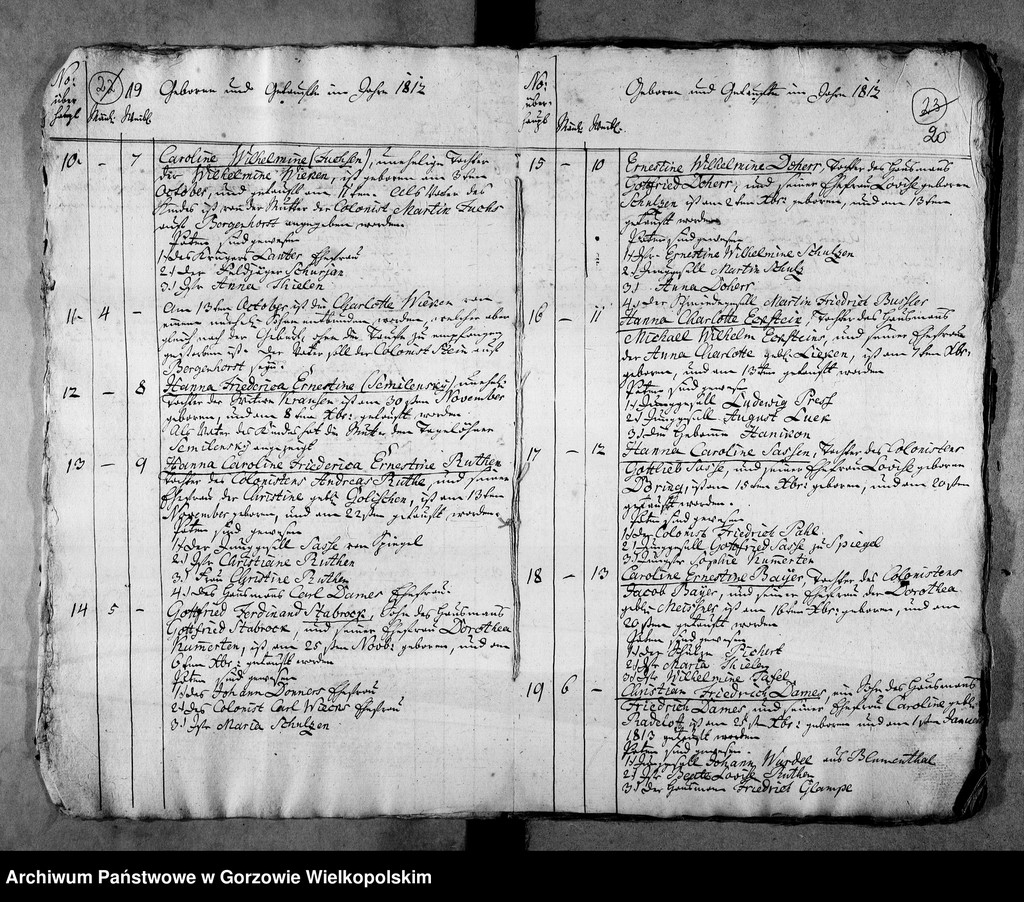 No: überhaupt
Männl. Weibl.
22 19 Geboren und Getaufte im Jahre 1812
10. - 7 Caroline Wilhelmine (Fuchsen), uneheliche Tochter
der Wilhelmine Wieken, ist geboren am 3ten
October, und getauft am 11ten. Als Vater des
Kindes ist von der Mutter der Colonist Martin Fuchs
aus Borgenhorst angegeben worden
Paten sind gewesen
1.) des Krügers Lauter Ehefrau
2.) der Feldjäger Schurjan
3.) Jfr Anna Thielen
11. 4 - Am 13ten October ist die Charlotte Wieken von
einem unehel. Sohn entbunden worden, welcher aber
gleich nach der Geburt, ohne die Taufe zu empfangen
gestorben ist. Der Vater soll der Colonist Stein aus
Borgenhorst seyn.
12 - 8 Hanna Friederica Ernestine (Semilensky), unehel.
Tochter der Witwe Krausen ist am 30sten November
geboren, und am 8ten Xbr: getauft worden.
Als Vater des Kindes hat die Mutter den Tagelöhner
Semilensky angezeigt
13 - 9 Hanna Caroline Friederica Ernestine Ruthen
Tochter des Colonisten Andreas Ruthe, und seiner
Ehefrau der Christine geb. Golschen, ist am 13ten
November geboren, und am 22sten getauft worden.
Paten sind gewesen
1.) der Junggesell Sasse von Spiegel
2.) Jfr Christiane Ruthen
3.) Frau Christine Ruthen
4.) des Hausmanns Carl Dames Ehefrau.
14 5 - Gottfried Ferdinand Stabrock, Sohn des Hausmanns
Gottfried Stabrock, und seiner Ehefrau Dorothea
Kummerten, ist am 25sten Novbr: geboren, und am
6ten Xbr: getauft worden
Paten sind gewesen
1.) des Johann Donners Ehefrau
2.) des Colonist Carl Ehefrau
3.) Jfr Maria Schulzen
No: überhaupt
Männl. Weibl.
Geboren und Getaufte im Jahre 1812
23
20
15 - 10 Ernestine Wilhelmine Doherr, Tochter des Hausmanns
Gottfried Doherr, und seiner Ehefrau Lovise geboren
Schulzen ist am 2ten Xbr: geboren, und am 13ten
getauft worden
Paten sind gewesen
1.) Jfr Ernestine Wilhelmine Schulzen
2.) Junggesell Martin Schulz
3.) Anna Doherr
4.) der Schmiedegesell Martin Friedrich Bussler
16 - 11 Hanna Charlotte Eckstein, Tochter des Hausmanns
Michael Wilhelm Ecksteins, und seiner Ehefrau
der Anna Charlotte geb. Lieken, ist am 7ten Xbr:
geboren, und am 13ten getauft worden
Paten sind gewesen
1.) Junggesell Ludwig
2.) Junggesell August Luck
3.) die Hebamme Hanixon
17 - 12 Hanna Caroline Sassen, Tochter des Colonisten
Gottlieb Sasse, und seiner Ehefrau Lovise geboren
Döring, ist am 15ten Xbr: geboren, und am 20sten
getauft worden.
Paten sind gewesen
1.) der Colonist Friedrich Pahl
2.) Junggesell Gottfried Sasse zu Spiegel
3.) Jungfer Sophie Kumerten
18 - 13 Caroline Ernestine Bayer, Tochter des Colonistens
Jacob Bayer, und seiner Ehefrau der Dorothea
geb. Meissner ist am 16ten Xbr: geboren, und am
20sten getauft worden
Paten sind gewesen
1.) der Pichert
2.) Jfr Maria Thielen
3.) Jfr Wilhelmine Tafel
19 6 - Christian Friedrich Dames, ein Sohn des Hausmanns
Friedrich Dames, und seiner Ehefrau Caroline geb.
Radeloff ist am 25sten Xbr: geboren und am 1sten Januar
1813 getauft worden
Paten sind gewesen.
1.) Junggesell Johann Wurdel aus Blumenthal
2.) Jfr Beate Lovise Ruthen
3.) der Hausmann Friedrich Glampe
Archiwum Państwowe w Gorzowie Wielkopolskim